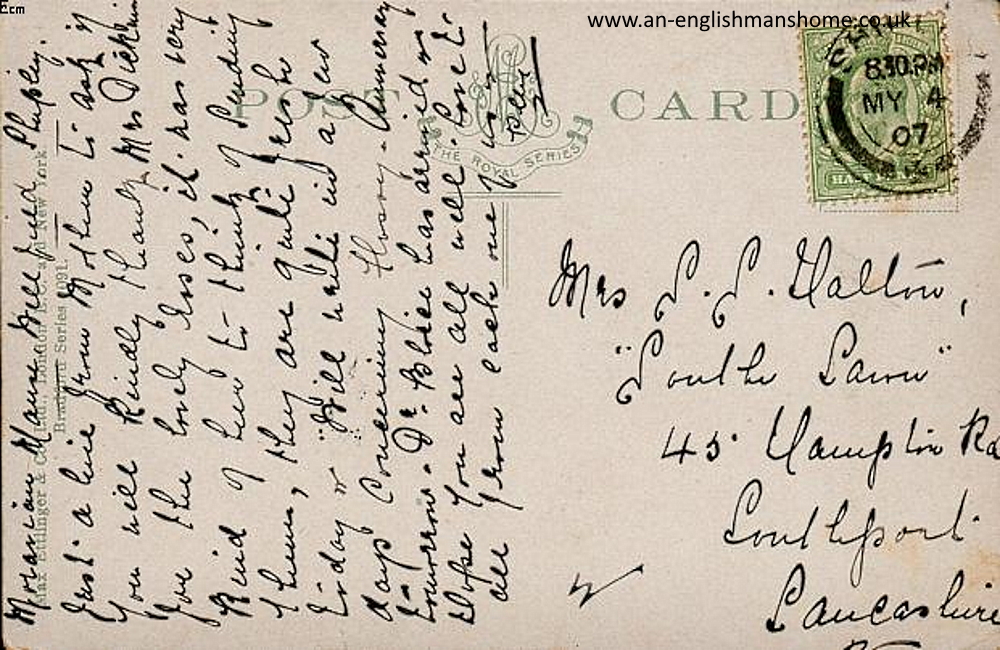 Ecm
www.an-englishmanshome.co.uk
POST CARD
THE ROYAL SERIES
SHIPL
8.30 PM
MY 4
07
Max Ettlinger & Co. Ltd., London E.C. and New York
Bradford Series 4091.
Moravian Manse. Wellfield Shipley.
Just a line from Mother to ask if
you will kindly thank Mrs Dickin
for the lovely roses, it was very
Kind of her to think of sending
them, they are quite fresh
today & "Will write in a few
days concerning Florry - Anniversary
to-morrow. Dr. Blosie has arrived
Hope you are all well. Love to
all from each one of us.
Mrs S. S. Halton,
"South Lawn"
45 Hampton Rd
Southport
Lancashire